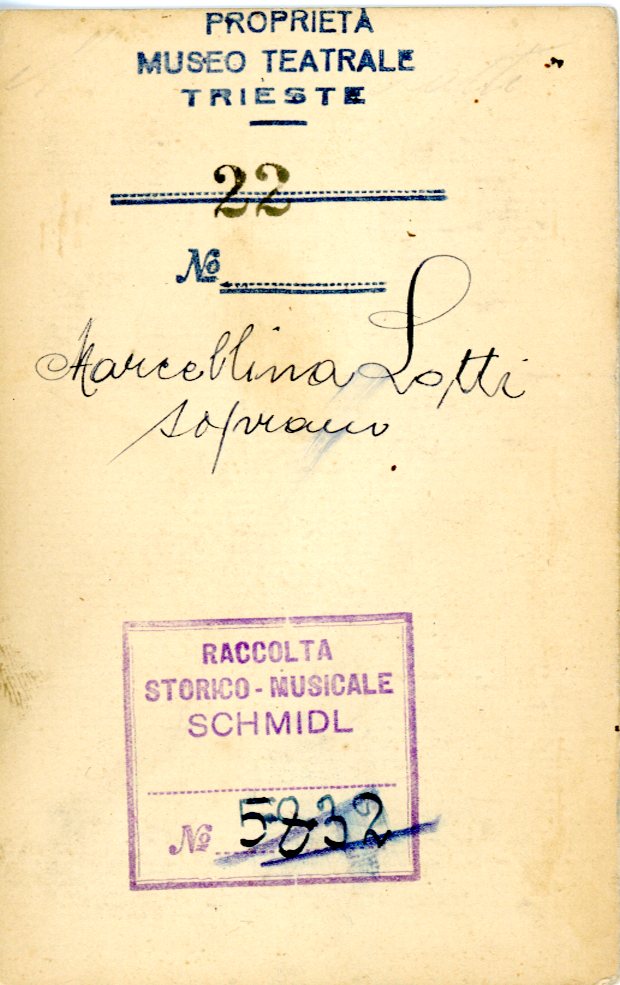 PROPRIETÀ
MUSEO TEATRALE
TRIESTE
22
No
Marcellina Lotti
soprano
RACCOLTA
STORICO-MUSICALE
SCHMIDL
No 5832